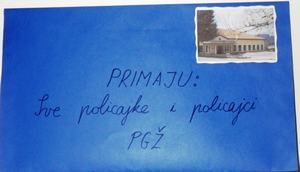 PRIMAJU:
Sve policajke i policajci
PGŽ